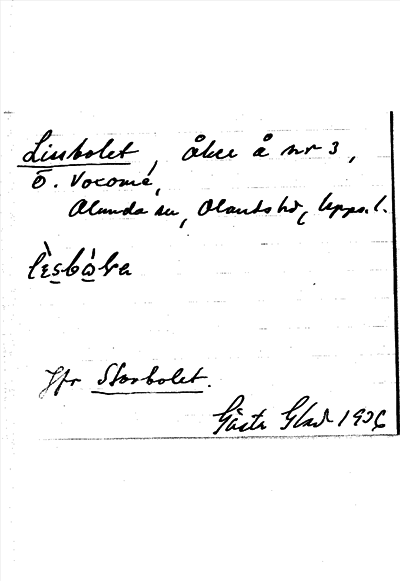 Lissbolet, åker å nr 3,
Ö. Voxome,
Alunda sn, Olands hd, Upps. l.
Jfr Storbolet.
Gösta Glad 1926